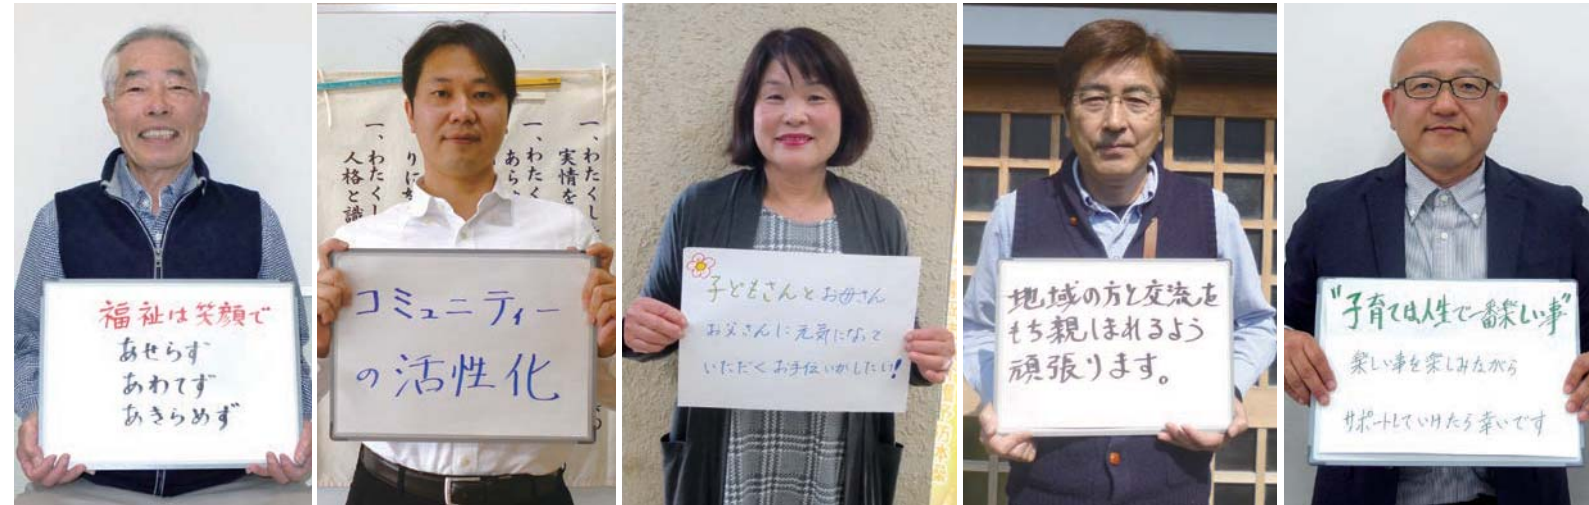 福祉は笑顔で
あせらず
あわてず
あきらめず
一、わたくし
実情を
一、わたく
あらゆ
りに
一、わたくし
人格と識
コミュニティー
の活性化
子どもさんとお母さん
お父さんに元気になって
いただくお手伝いがしたい!
地域の方と交流を
もち親しまれるよう
頑張ります。
"子育ては人生で一番楽しい事"
楽しい事を楽しみながら
サポートしていけたら幸いです